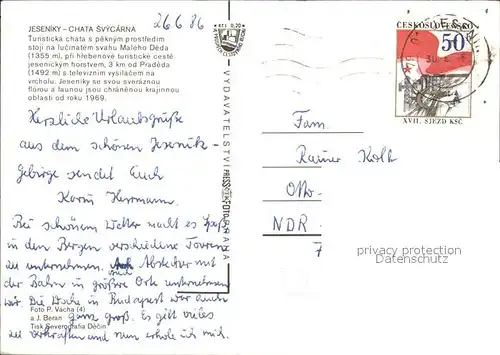 JESENÍKY – CHATA ŠVÝCÁRNA
26.6.86
Turistická chata s pěkným prostředím
stojí na lučinatém svahu Malého Děda
(1355 m), při hřebenové turistické cestě
jesenickým horstvem, 3 km od Praděda
(1492 m) s televizním vysílačem na
vrcholu. Jeseníky se svou svéráznou
flórou a faunou jsou chráněnou krajinnou
oblastí od roku 1969.
Herzliche Urlaubsgrüße
aus dem schönen Jesenik-
Gebirge sendet Euch
Karin Herrmann.
Bei schönem Wetter macht es Spaß
in den Bergen verschiedene Touren
zu unternehmen. Auch Abstecher mit
der Bahn in größere Orte unternehmen
wir. Die Woche in Budapest war auch
ganz groß. Es gilt vieles
zu verkraften und nun erhole ich mich.
Foto P. Vácha (4)
a J. Beran
Tisk Severografia Děčín
Kčs 0,20
VYDAVATELSTVÍ PRESSFOTO PRAHA
ČESKOSLOVENSKO
50
XVII. SJEZD KSČ
Fam.
Rainer Kolb
NDR
7
privacy protection
Datenschutz